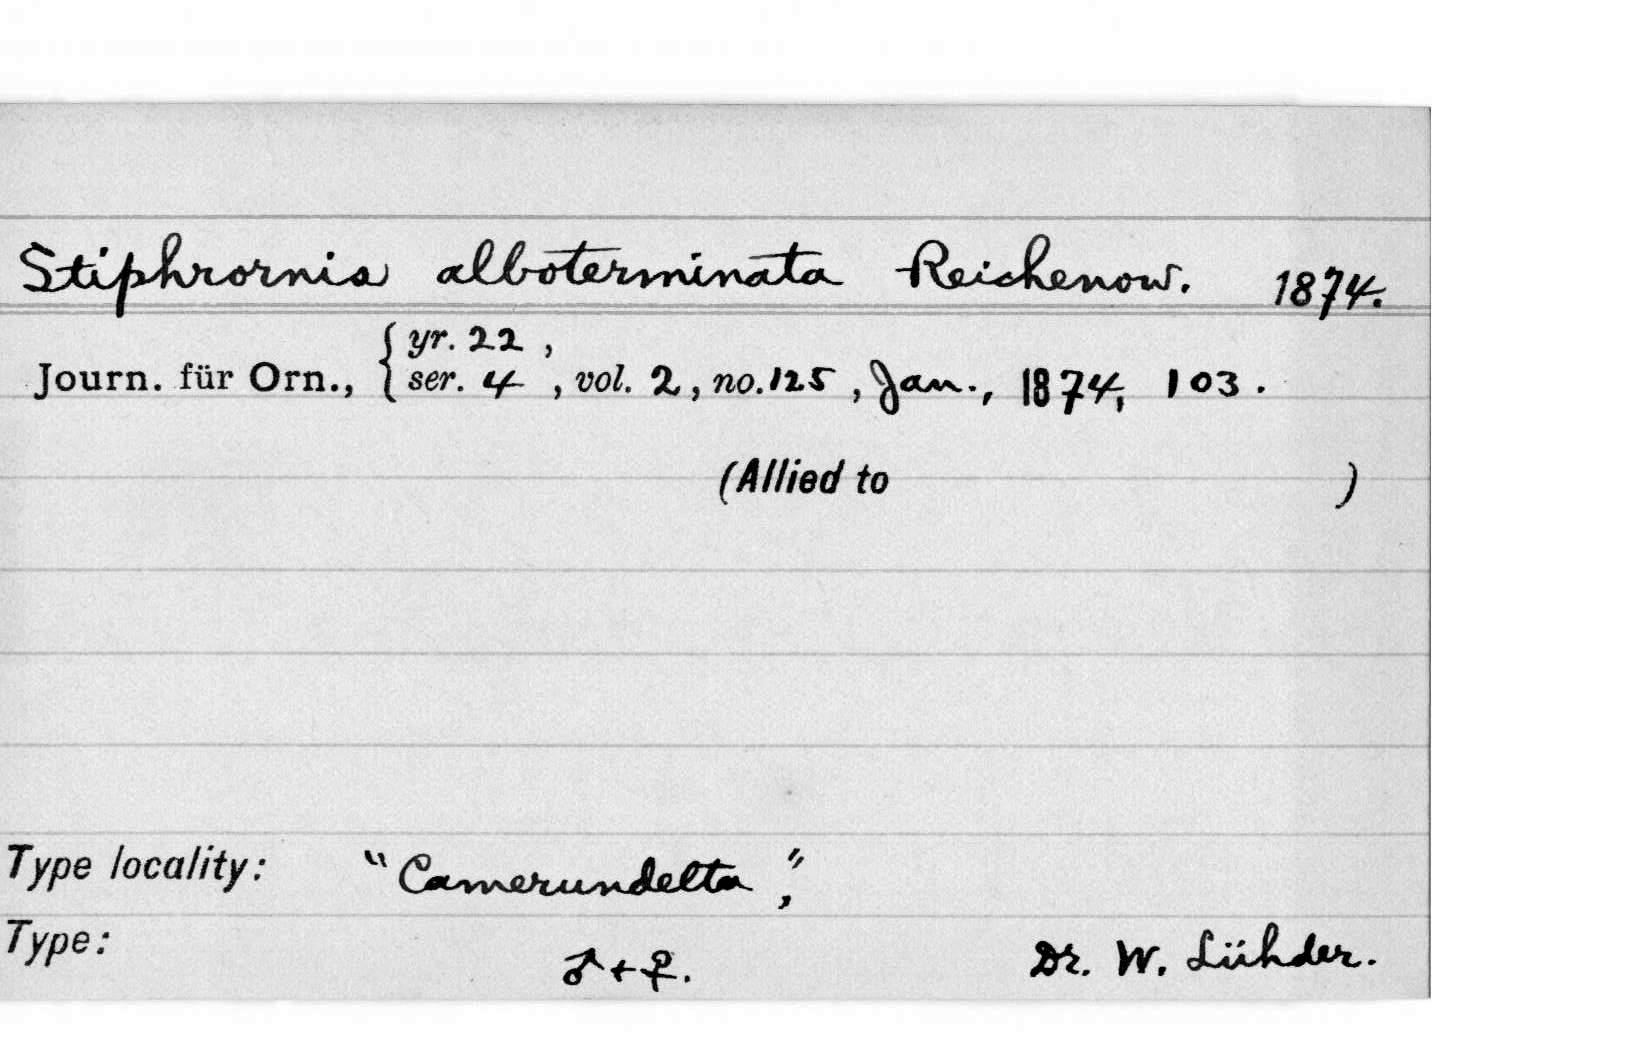 Stiphrornis alboterminata Reichenow. 1874.
yr. 22 ,
Journ. für Orn., { ser. 4 , vol. 2, no. 125 , Jan., 1874, 103.
(Allied to )
Type locality: "Camerundelta",
Type: ♂ + ♀. Dr. W. Lühder.